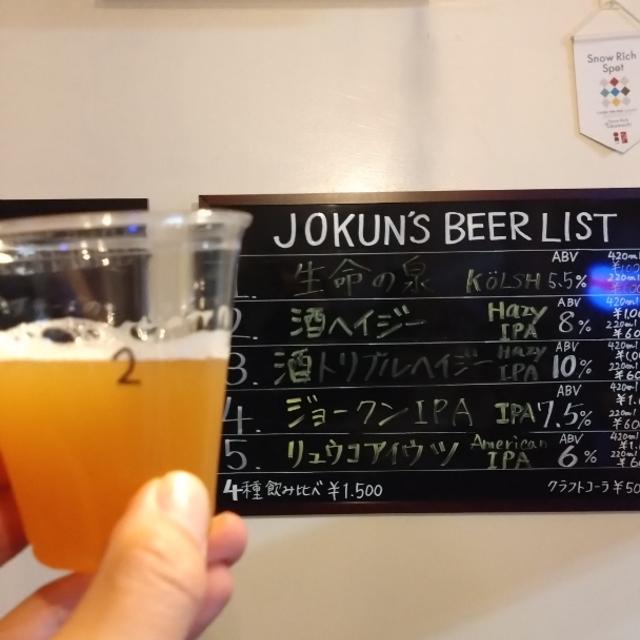 Snow Rich
Spot
2
JOKUN'S BEER LIST
ABV 420ml
1. 生命の泉 KÖLSH 5.5% 220ml
ABV 420ml
2. 酒ヘイジー Hazy IPA 8% 220ml
ABV 420ml
3. 酒トリプルヘイジー Hazy IPA 10% 220ml
ABV 420ml
4. ジョークンIPA IPA 7.5% 220ml
ABV 420ml
5. リュウコアイウツ American IPA 6% 220ml
4種飲み比べ ¥1.500 クラフトコーラ